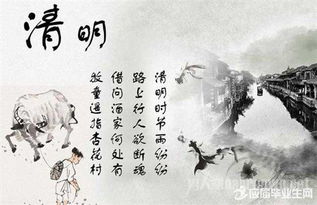 清明
清明时节雨纷纷
路上行人欲断魂
借问酒家何处有
牧童遥指杏花村
应届毕业生网